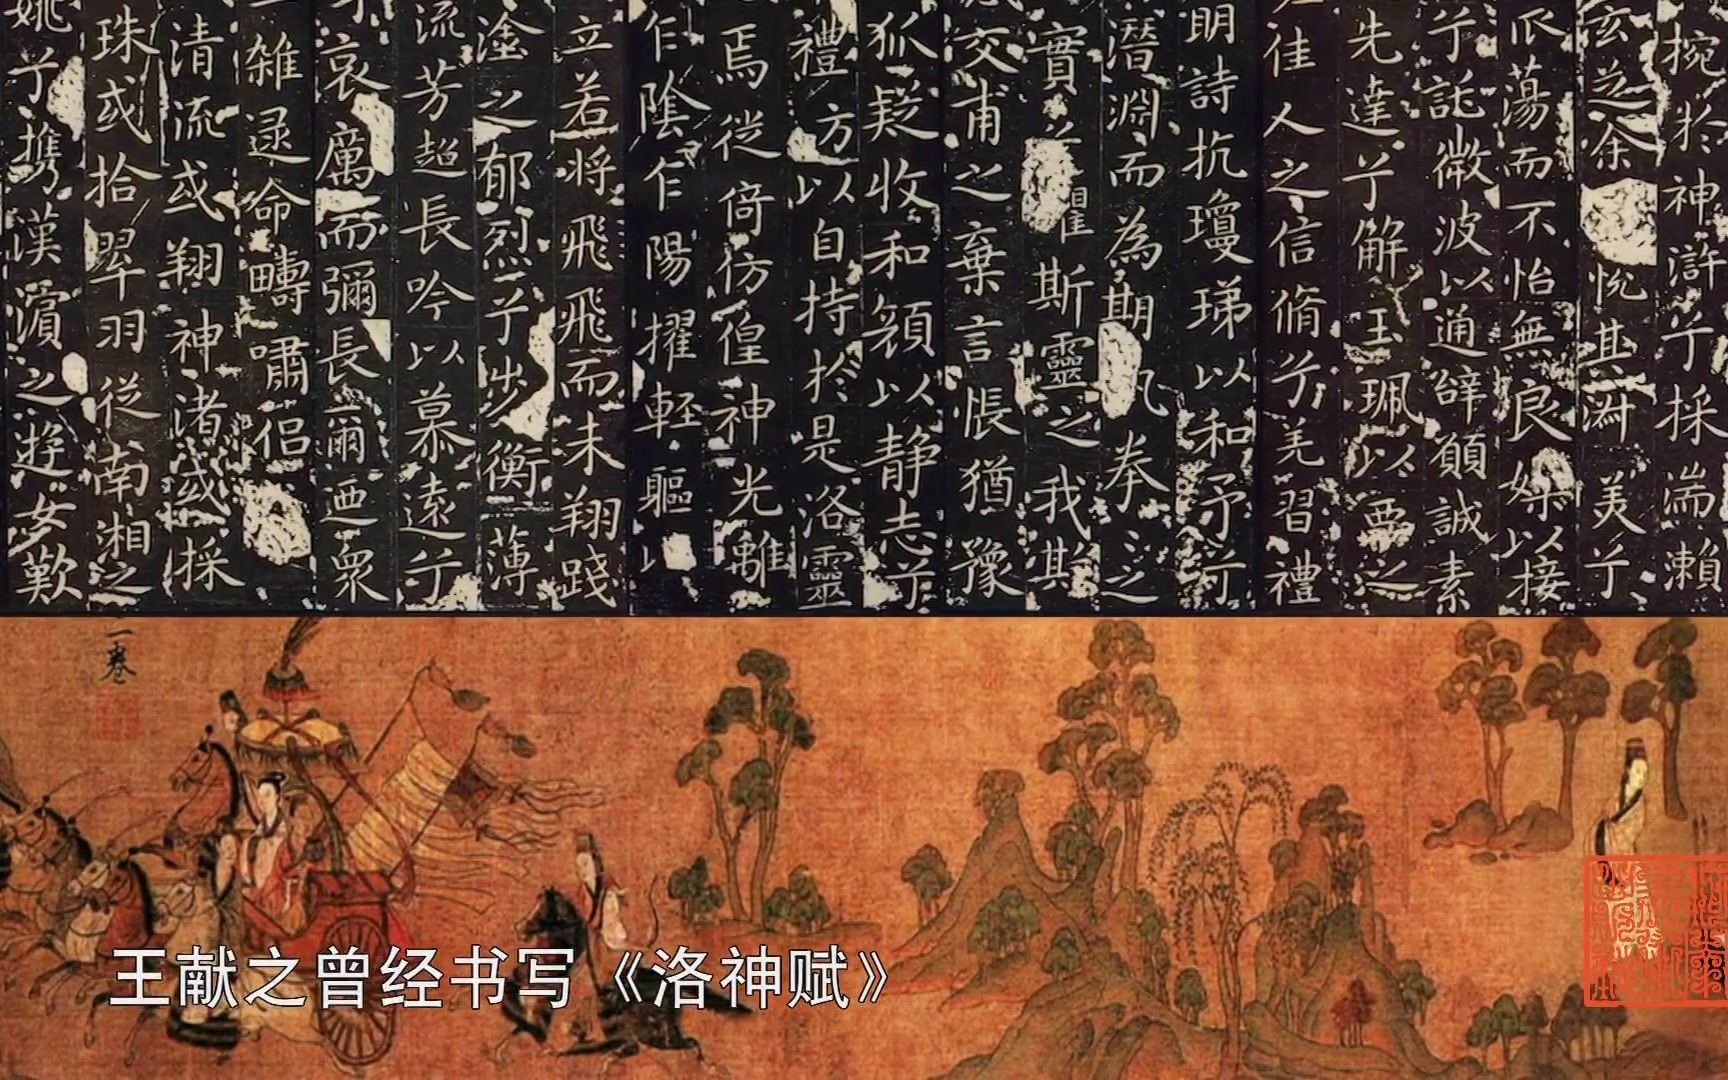 捥於神滸兮採湍瀨
玄芝余悅其淑美兮
蕩而不怡無良媒以接
兮託微波以通辭願誠素
先達兮解玉珮以要之
佳人之信脩兮羌習禮
明詩抗瓊珶以和予兮
潛淵而為期執拳〻之
實兮懼斯靈之我欺
交甫之棄言悵猶豫
狐疑收和顏以静志兮
禮方以自持於是洛靈
焉徙倚仿偟神光離
乍陰乍陽擢輕軀以
立若將飛飛而未翔踐
塗之郁烈兮步衡薄
流芳超長吟以慕遠兮
哀厲而彌長爾迺衆
雜遝命疇嘯侶
清流或翔神渚或採
珠或拾翠羽從南湘之
兮攜漢濱之遊女歎
一卷
王献之曾经书写《洛神赋》